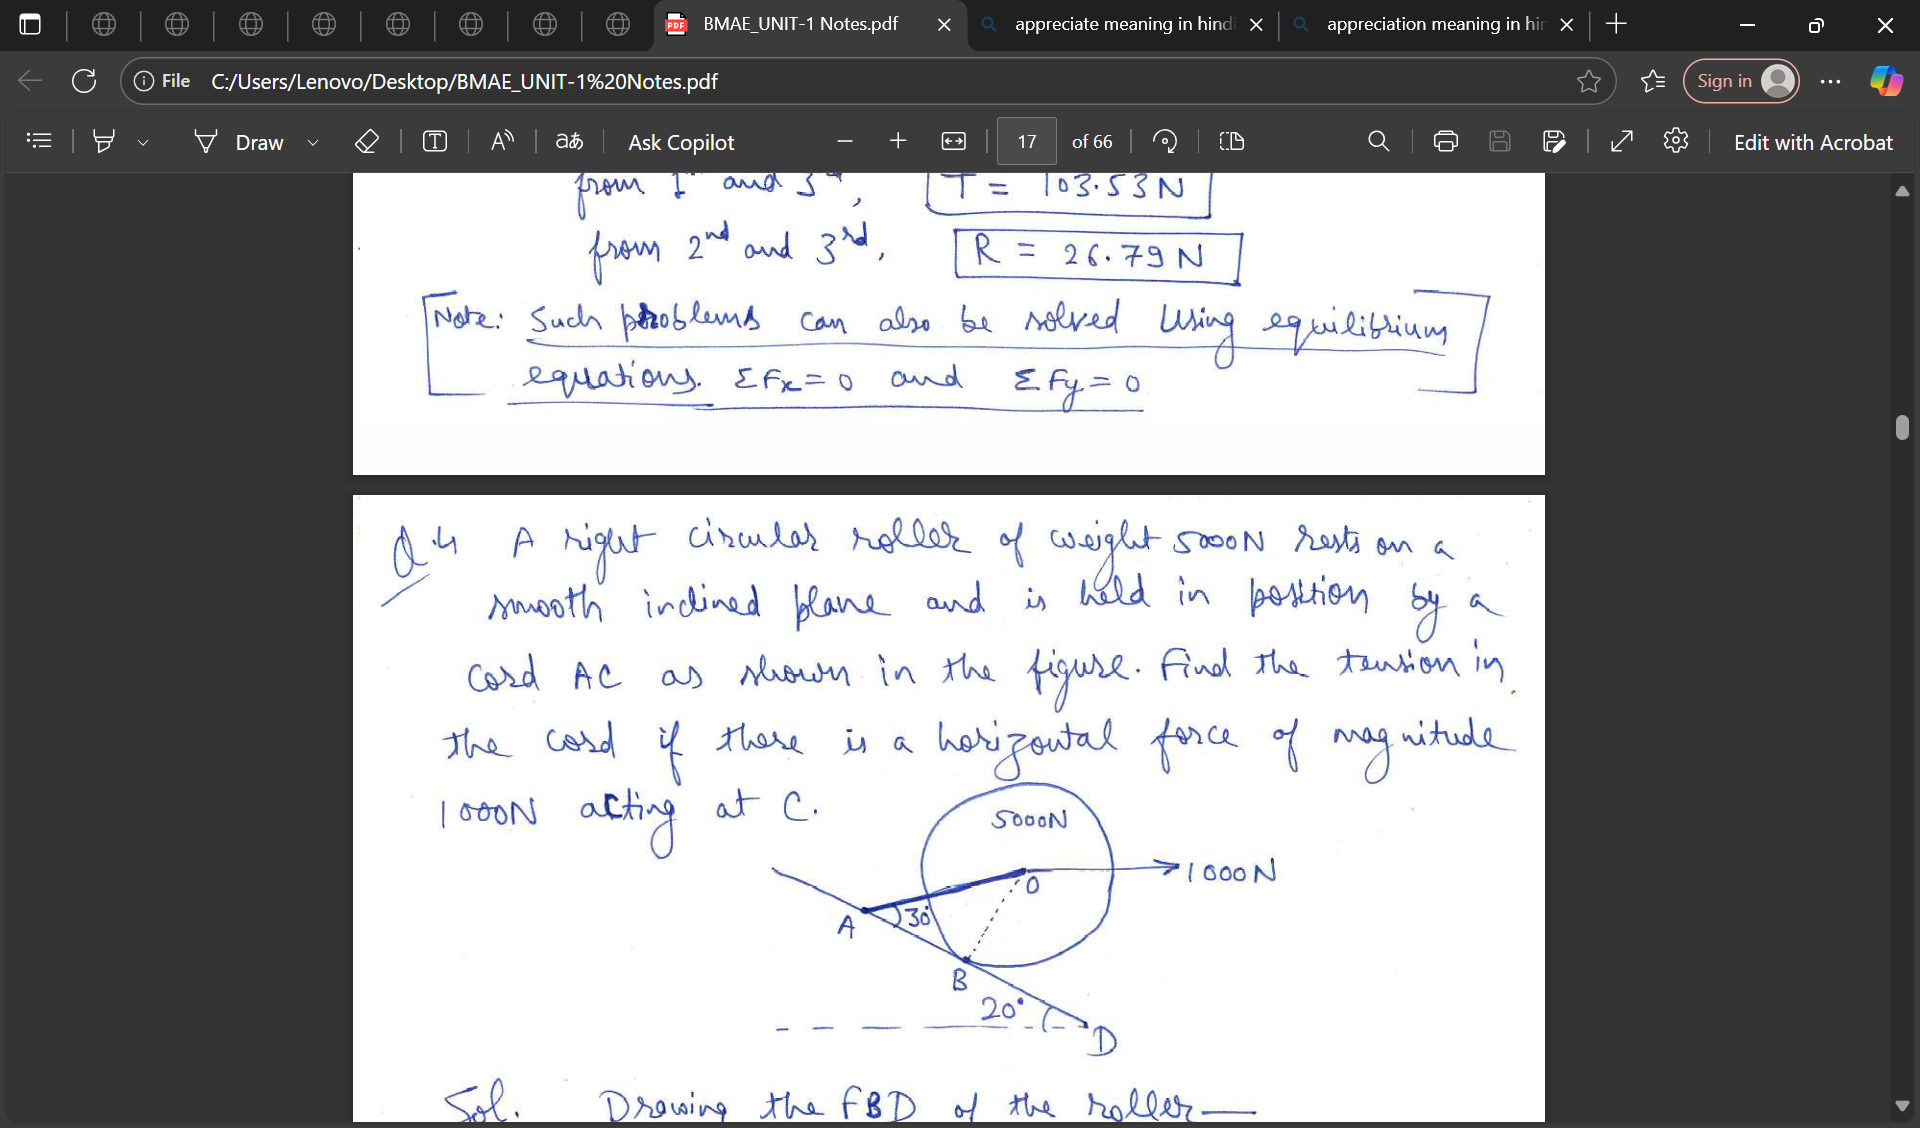 BMAE_UNIT-1 Notes.pdf
appreciate meaning in hindi
appreciation meaning in hin
File C:/Users/Lenovo/Desktop/BMAE_UNIT-1%20Notes.pdf
Sign in
Draw
Ask Copilot
17 of 66
Edit with Acrobat
from 1st and 3rd, T = 103.53N
from 2nd and 3rd, R = 26.79 N
Note: Such problems can also be solved using equilibrium
equations. ΣFx=0 and ΣFy=0
Q.4 A right circular roller of weight 5000N rests on a
smooth inclined plane and is held in position by a
cord AC as shown in the figure. Find the tension in
the cord if there is a horizontal force of magnitude
1000N acting at C.
5000N
1000N
O
A
30°
B
20°
D
Sol. Drawing the FBD of the roller—